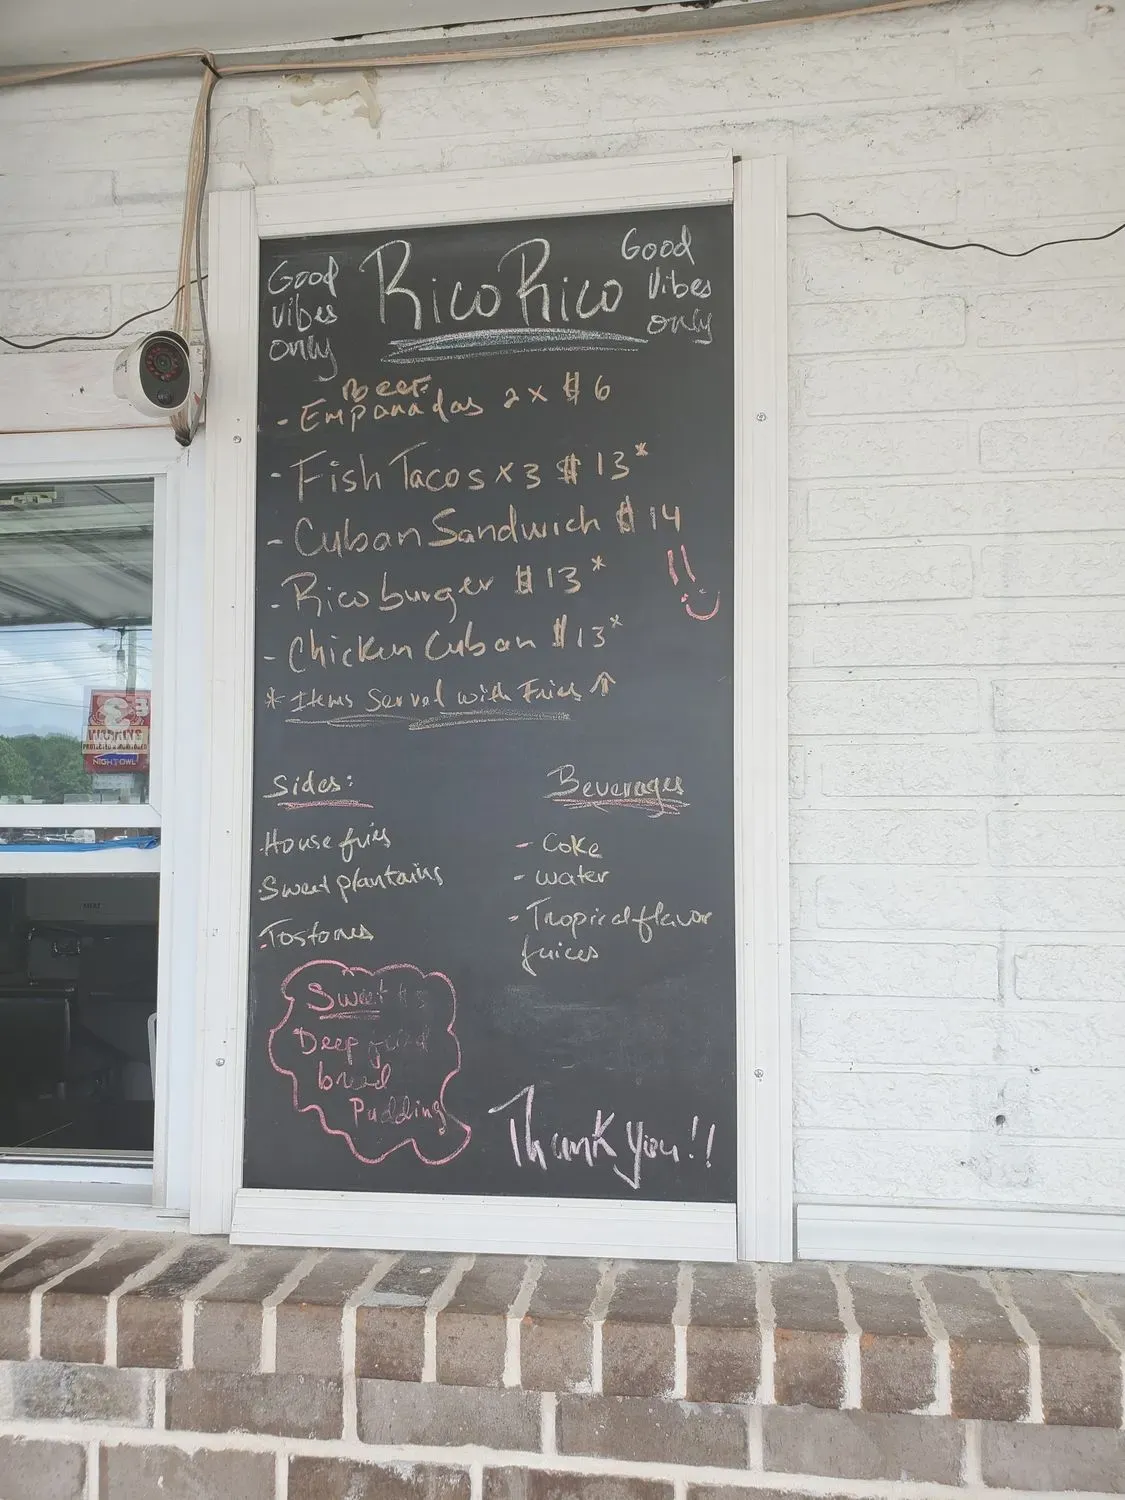 Good
vibes
only
Rico Rico
Good
Vibes
only
Beef
- Empanadas 2x $6
- Fish Tacos x3 $13*
- Cuban Sandwich $14
- Rico burger $13*
!!
- Chicken Cuban $13*
* Items Served with Fries ↑
Sides:
House fries
Sweet plantains
Tostones
Beverages
- Coke
- water
- Tropical flavor
juices
Sweet $5
Deep fried
bread
Pudding
Thank you!!
WARNING
NIGHT OWL